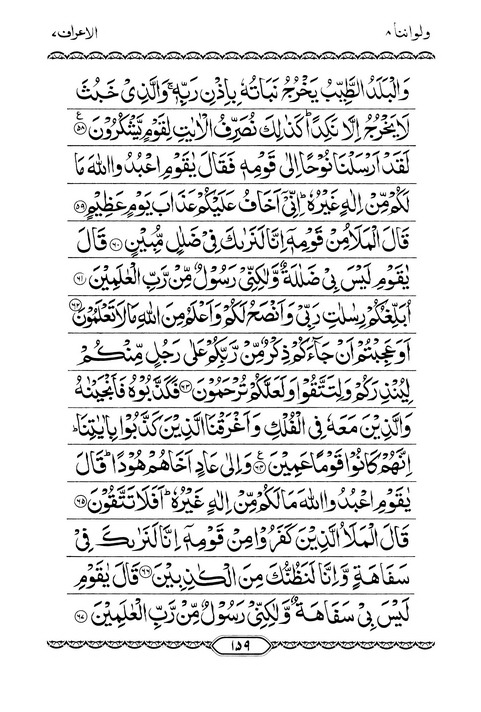 ولواننا ٨ الاعراف ٧
وَالْبَلَدُ الطَّيِّبُ يَخْرُجُ نَبَاتُهٗ بِاِذْنِ رَبِّهٖ ۚ وَالَّذِیْ خَبُثَ
لَا یَخْرُجُ اِلَّا نَكِدًا ؕ كَذٰلِكَ نُصَرِّفُ الْاٰیٰتِ لِقَوْمٍ یَّشْكُرُوْنَ ﴿۵۸﴾ ع
لَقَدْ اَرْسَلْنَا نُوْحًا اِلٰی قَوْمِهٖ فَقَالَ یٰقَوْمِ اعْبُدُوا اللّٰهَ مَا
لَكُمْ مِّنْ اِلٰهٍ غَیْرُهٗ ؕ اِنِّیْۤ اَخَافُ عَلَیْكُمْ عَذَابَ یَوْمٍ عَظِیْمٍ ﴿۵۹﴾
قَالَ الْمَلَاُ مِنْ قَوْمِهٖۤ اِنَّا لَنَرٰىكَ فِیْ ضَلٰلٍ مُّبِیْنٍ ﴿۶۰﴾ قَالَ
یٰقَوْمِ لَیْسَ بِیْ ضَلٰلَةٌ وَّلٰكِنِّیْ رَسُوْلٌ مِّنْ رَّبِّ الْعٰلَمِیْنَ ﴿۶۱﴾
اُبَلِّغُكُمْ رِسٰلٰتِ رَبِّیْ وَاَنْصَحُ لَكُمْ وَاَعْلَمُ مِنَ اللّٰهِ مَا لَا تَعْلَمُوْنَ ﴿۶۲﴾
اَوَعَجِبْتُمْ اَنْ جَآءَكُمْ ذِكْرٌ مِّنْ رَّبِّكُمْ عَلٰی رَجُلٍ مِّنْكُمْ
لِیُنْذِرَكُمْ وَلِتَتَّقُوْا وَلَعَلَّكُمْ تُرْحَمُوْنَ ﴿۶۳﴾ فَكَذَّبُوْهُ فَاَنْجَیْنٰهُ
وَالَّذِیْنَ مَعَهٗ فِی الْفُلْكِ وَاَغْرَقْنَا الَّذِیْنَ كَذَّبُوْا بِاٰیٰتِنَا ؕ
اِنَّهُمْ كَانُوْا قَوْمًا عَمِیْنَ ﴿۶۴﴾ ع وَاِلٰی عَادٍ اَخَاهُمْ هُوْدًا ؕ قَالَ
یٰقَوْمِ اعْبُدُوا اللّٰهَ مَا لَكُمْ مِّنْ اِلٰهٍ غَیْرُهٗ ؕ اَفَلَا تَتَّقُوْنَ ﴿۶۵﴾
قَالَ الْمَلَاُ الَّذِیْنَ كَفَرُوْا مِنْ قَوْمِهٖۤ اِنَّا لَنَرٰىكَ فِیْ
سَفَاهَةٍ وَّاِنَّا لَنَظُنُّكَ مِنَ الْكٰذِبِیْنَ ﴿۶۶﴾ قَالَ یٰقَوْمِ
لَیْسَ بِیْ سَفَاهَةٌ وَّلٰكِنِّیْ رَسُوْلٌ مِّنْ رَّبِّ الْعٰلَمِیْنَ ﴿۶۷﴾
۱۵۹